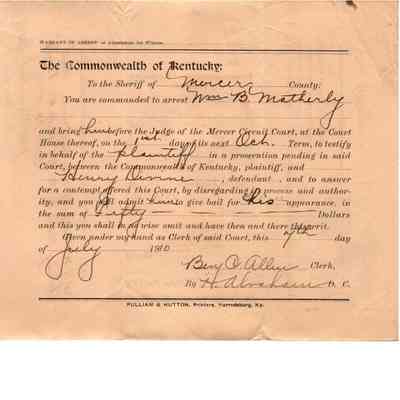 WARRANT OF ARREST—
The Commonwealth of Kentucky:
To the Sheriff of Mercer County:
You are commanded to arrest Wm B. Matherly
and bring him before the Judge of the Mercer Circuit Court, at the Court
House thereof, on the 1st day of its next Oct. Term, to testify
in behalf of the plaintiff in a prosecution pending in said
Court, between the Commonwealth of Kentucky, plaintiff, and
Henry , defendant , and to answer
for a contempt offered this Court, by disregarding its process and author-
ity; and you will admit him to give bail for his appearance, in
the sum of Fifty Dollars
and this you shall in no wise omit and have then and there this writ.
Given under my hand as Clerk of said Court, this 7th day
of July 1910
Benj O. Allen Clerk,
By H. Abraham D. C.
PULLIAM & HUTTON, Printers, Harrodsburg, Ky.